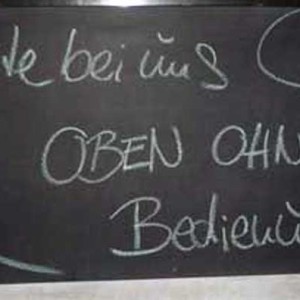 te bei uns
OBEN OHN
Bedienu